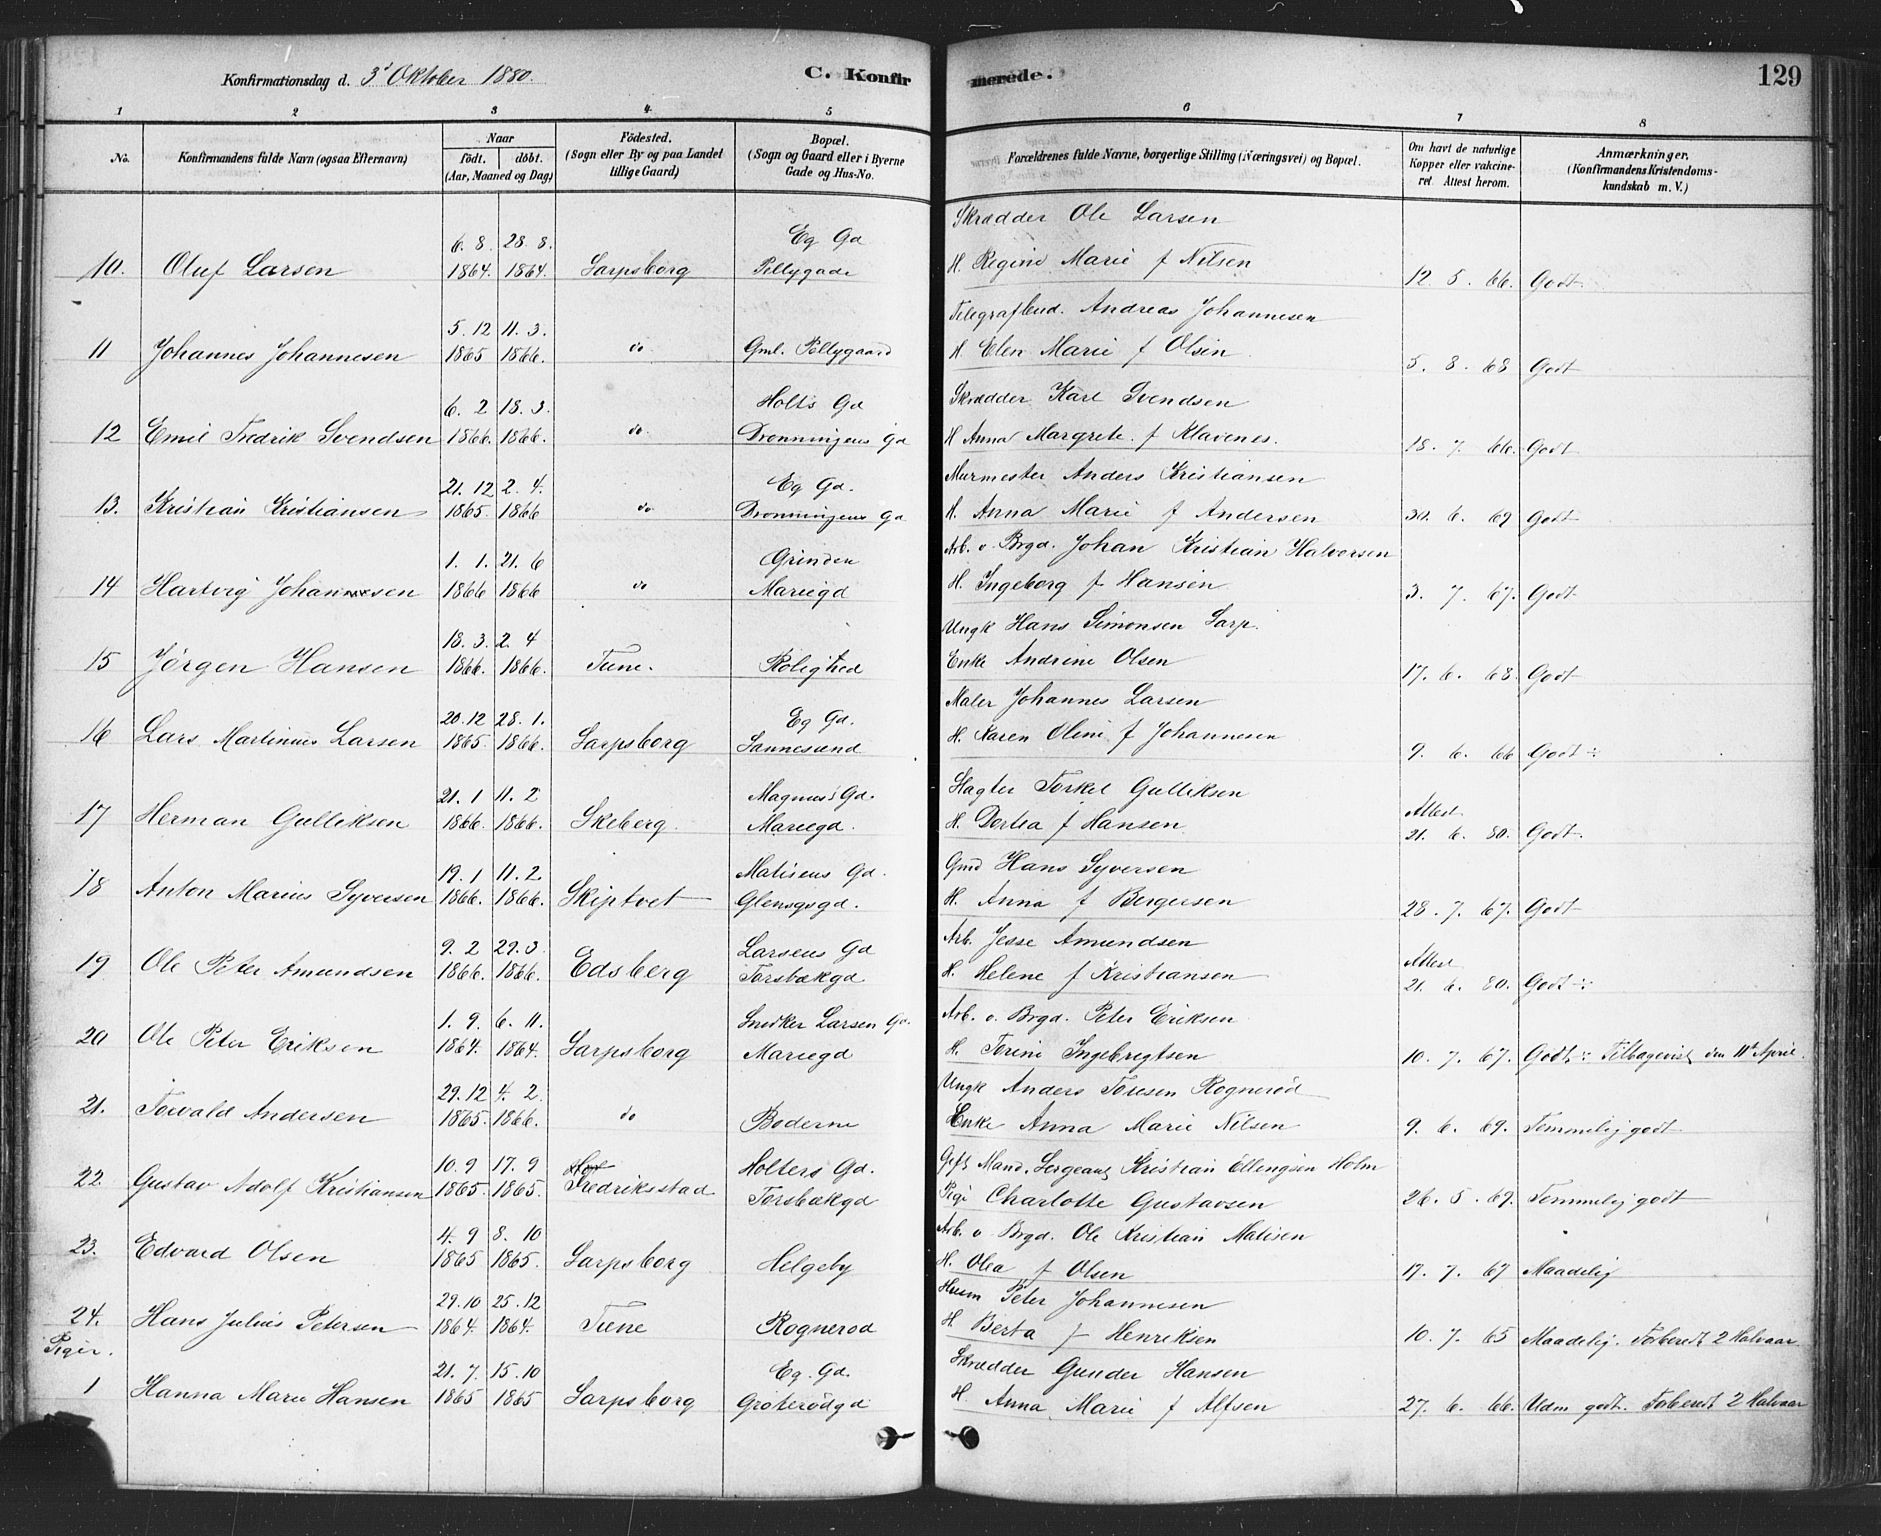 Konfirmationsdag d. 3' Oktober 1880. C. Konfirmerede. 129
1 2 3 4 5 6 7 8
No. Konfirmandens fulde Navn (ogsaa Efternavn) Naar födt. döbt. (Aar, Maaned og Dag) Födested. (Sogn eller By og paa Landet tillige Gaard) Bopæl. (Sogn og Gaard eller i Byerne Gade og Hus-No. Forældrenes fulde Navne, borgerlige Stilling (Næringsvei) og Bopæl. Om havt de naturlige Kopper eller vakcineret Attest herom. Anmærkninger. (Konfirmandens Kristendomskundskab m. V.)
6. 8. 28. 8. Eg Gd Skrædder Ole Larsen
10. Oluf Larsen 1864. 1864. Sarpsborg Pellygade H. Regine Marie f Nilsen 12. 5. 66. Godt
5. 12 11. 3. Telegrafbud. Andreas Johannesen
11 Johannes Johannesen 1865 1866. do Gml. Pellygaard H. Elen Marie f Olsen 5. 8. 68 Godt
6. 2 18. 3. Holts Gd Skrædder Karl Svendsen
12 Emil Fredrik Svendsen 1866. 1866. do. Dronningens Gd H Anna Margrete. f Klavenes. 18. 7. 66. Godt
21. 12 2. 4. Eg Gd. Murmester Anders Kristiansen
13. Kristian Kristiansen 1865. 1866 do Dronningens Gd H. Anna Marie f Andersen 30. 6. 69 Godt
1. 1. 21. 6 Grinden Arb. o Brgd. Johan Kristian Halvorsen
14 Hartvig Johannesen 1866 1866 do Mariegd H. Ingeborg f Hansen 3. 7. 67. Godt
18. 3. 2. 4 Ungk Hans Simonsen Sarp.
15 Jørgen Hansen 1866. 1866. Tune. Rolighed Enke Andrine Olsen 17. 6. 68. Godt
20. 12 28. 1. Eg Gd. Maler Johannes Larsen
16 Lars Martinius Larsen 1865. 1866. Sarpsborg Sannesund H. Karen Oline f Johannesen 9. 6. 66 Godt
21. 1 11. 2 Magnus's Gd. Hagter Torkel Gulliksen Attest
17 Herman Gulliksen 1866. 1866. Skeberg. Mariegd. H. Dortea f Hansen 21. 6. 80. Godt.
19. 1 11. 2. Matisens Gd. Gmd Hans Syversen
18 Anton Marius Syversen 1866. 1866. Skiptvet Glensgsgd. H. Anna f Bergersen 28. 7. 67. Godt
9. 2 29. 3. Larsens Gd Arb. Jesse Amundsen Attest
19 Ole Peter Amundsen 1866. 1866. Edsberg Torsbækgd H. Helene f Kristiansen 21. 6. 80. Godt
1. 9. 6. 11. Snedker Larsen Gd. Arb. o. Brgd. Peter Eriksen
20 Ole Peter Eriksen 1864. 1864. Sarpsborg Mariegd H. Terine Ingebrigtsen 10. 7. 67. Godt. Tilbagevist den 11te April.
29. 12 4. 2. Ungk Anders Toresen Rognerød
21. Torvald Andersen 1865. 1866. do Boderne Enke Anna Marie Nilsen 9. 6. 69. Temmelig godt
10. 9 17. 9 Holters Gd. Gift Mand, Sergeant Kristian Ellingsen Holm
22. Gustav Adolf Kristiansen 1865. 1865. Fredriksstad Torsbækgd Pige Charlotte Gustavsen 26. 5. 69. Temmelig godt
4. 9 8. 10 Arb. o Brgd. Ole Kristian Matisen
23. Edvard Olsen 1865 1865. Sarpsborg Helgeby H. Olea f Olsen 17. 7. 67 Maadelig
29. 10 25. 12 Husm Peter Johannesen
24. Hans Julius Petersen 1864. 1864. Tune Rognerød H. Berta f Henriksen 10. 7. 65 Maadelig. Forberedt 2 Halvaar.
Piger.
21. 7. 15. 10 Eg. Gd. Skrædder Gunder Hansen
1 Hanna Marie Hansen 1865 1865 Sarpsborg Grøterødgd H. Anna Marie f Alfsen 27. 6. 66. Udm godt. Forberedt 2 Halvaar